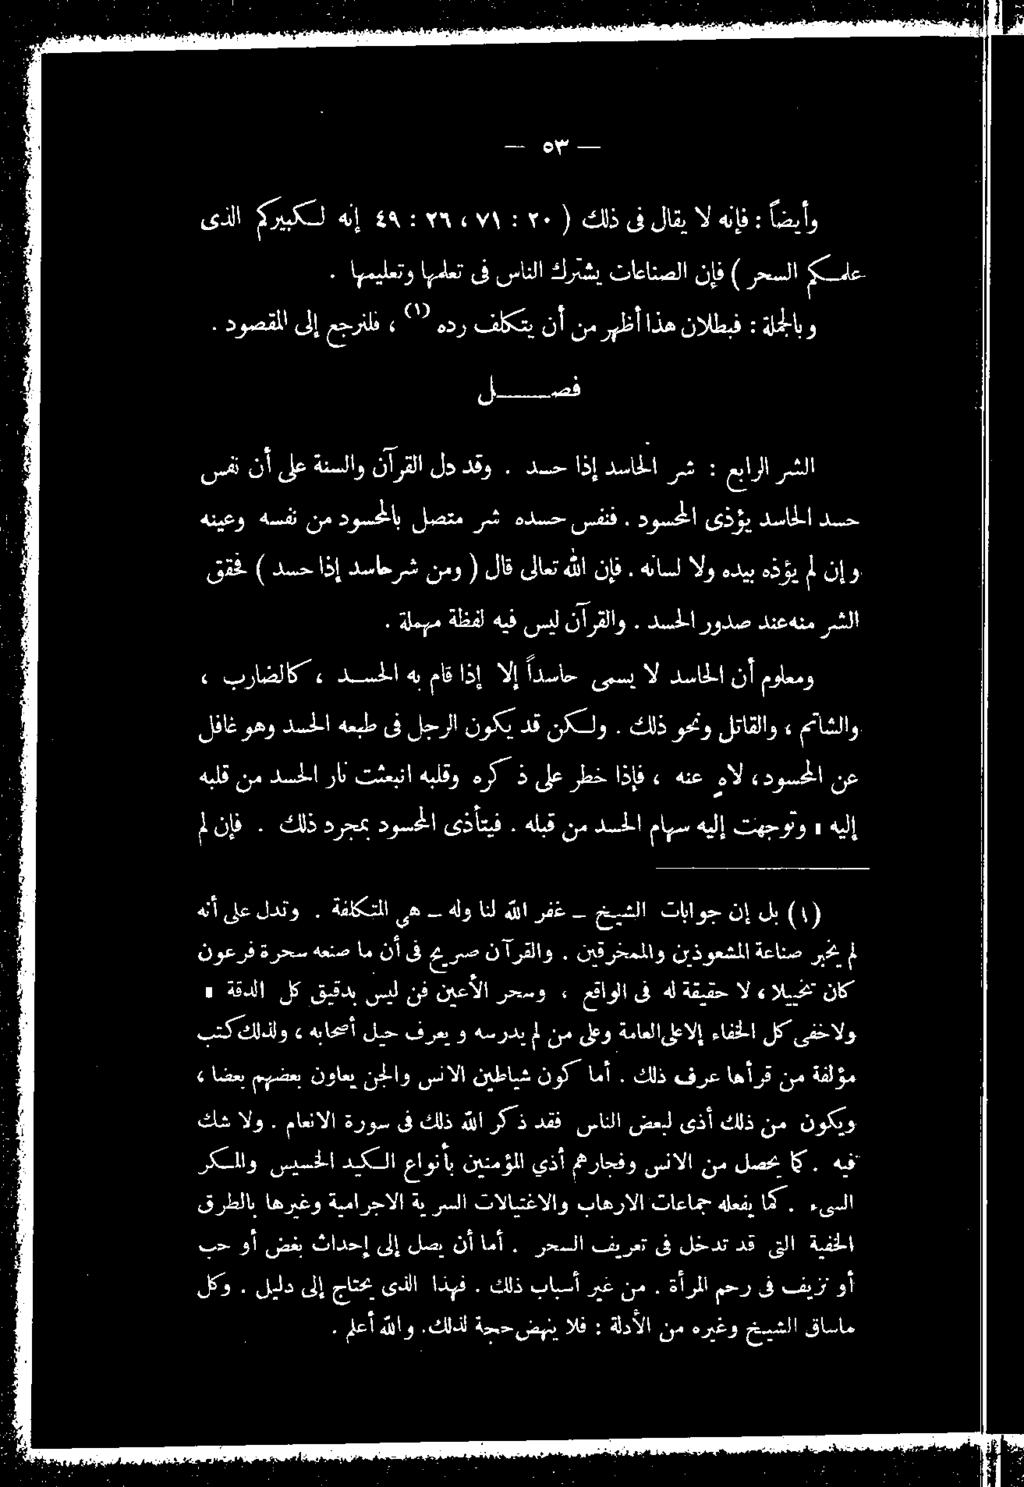 — ٥٣ —
وأيضاً : فإنه لا يقال فى ذلك ( ٢٠ : ٧١ ، ٢٦ : ٤٩ إنه لكبيركم الذى
علمكم السحر ) فإن الصناعات يشترك الناس فى تعلمها وتعليمها .
وبالجملة : فبطلان هذا أظهر من أن يتكلف رده (١) ، فلنرجع إلى المقصود .
فصل
الشر الرابع : شر الحاسد إذا حسد . وقد دل القرآن والسنة على أن نفس
حسد الحاسد يؤذى المحسود . فنفس حسده شر متصل بالمحسود من نفسه وعينه
وإن لم يؤذه بيده ولا لسانه . فإن الله تعالى قال ( ومن شر حاسد إذا حسد ) فحقق
الشر منه عند صدور الحسد . والقرآن ليس فيه لفظة مهملة .
ومعلوم أن الحاسد لا يسمى حاسداً إلا إذا قام به الحسد ، كالضارب ،
والشاتم ، والقاتل ونحو ذلك . ولكن قد يكون الرجل فى طبعه الحسد وهو غافل
عن المحسود ، لاهٍ عنه ، فإذا خطر على ذكره وقلبه انبعثت نار الحسد من قلبه
إليه ، وتوجهت إليه سهام الحسد من قبله . فيتأذى المحسود بمجرد ذلك . فإن لم
(١) بل إن جوابات الشيخ – غفر الله لنا وله – هى المتكلفة . وتدل على أنه
لم يخبر صناعة المشعوذين والممخرقين . والقرآن صريح فى أن ما صنعه سحرة فرعون
كان تخييلا ، لا حقيقة له فى الواقع ، وسحر الأعين فن ليس بدقيق كل الدقة ،
ولاخفى كل الخفاء إلا على العامة وعلى من لم يدرسه و يعرف حيل أصحابه ، ولذلك كتب
مؤلفة من قرأها عرف ذلك . أما كون شياطين الانس والجن يعاون بعضهم بعضا ،
ويكون من ذلك أذى لبعض الناس فقد ذكر الله ذلك فى سورة الانعام . ولا شك
فيه . كما يحصل من الانس وفجارهم أذي المؤمنين بأنواع الكيد الخسيس والمكر
السىء . كما يفعله جماعات الارهاب والاغتيالات السرية الاجرامية وغيرها بالطرق
الخفية التى قد تدخل فى تعريف السحر . أما أن يصل إلى إحداث بغض أو حب
أو نزيف فى رحم المرأة . من غير أسباب ذلك . فهذا الذى يحتاج إلى دليل . وكل
ماساق الشيخ وغيره من الأدلة : فلا ينهض حجة لذلك . والله أعلم .